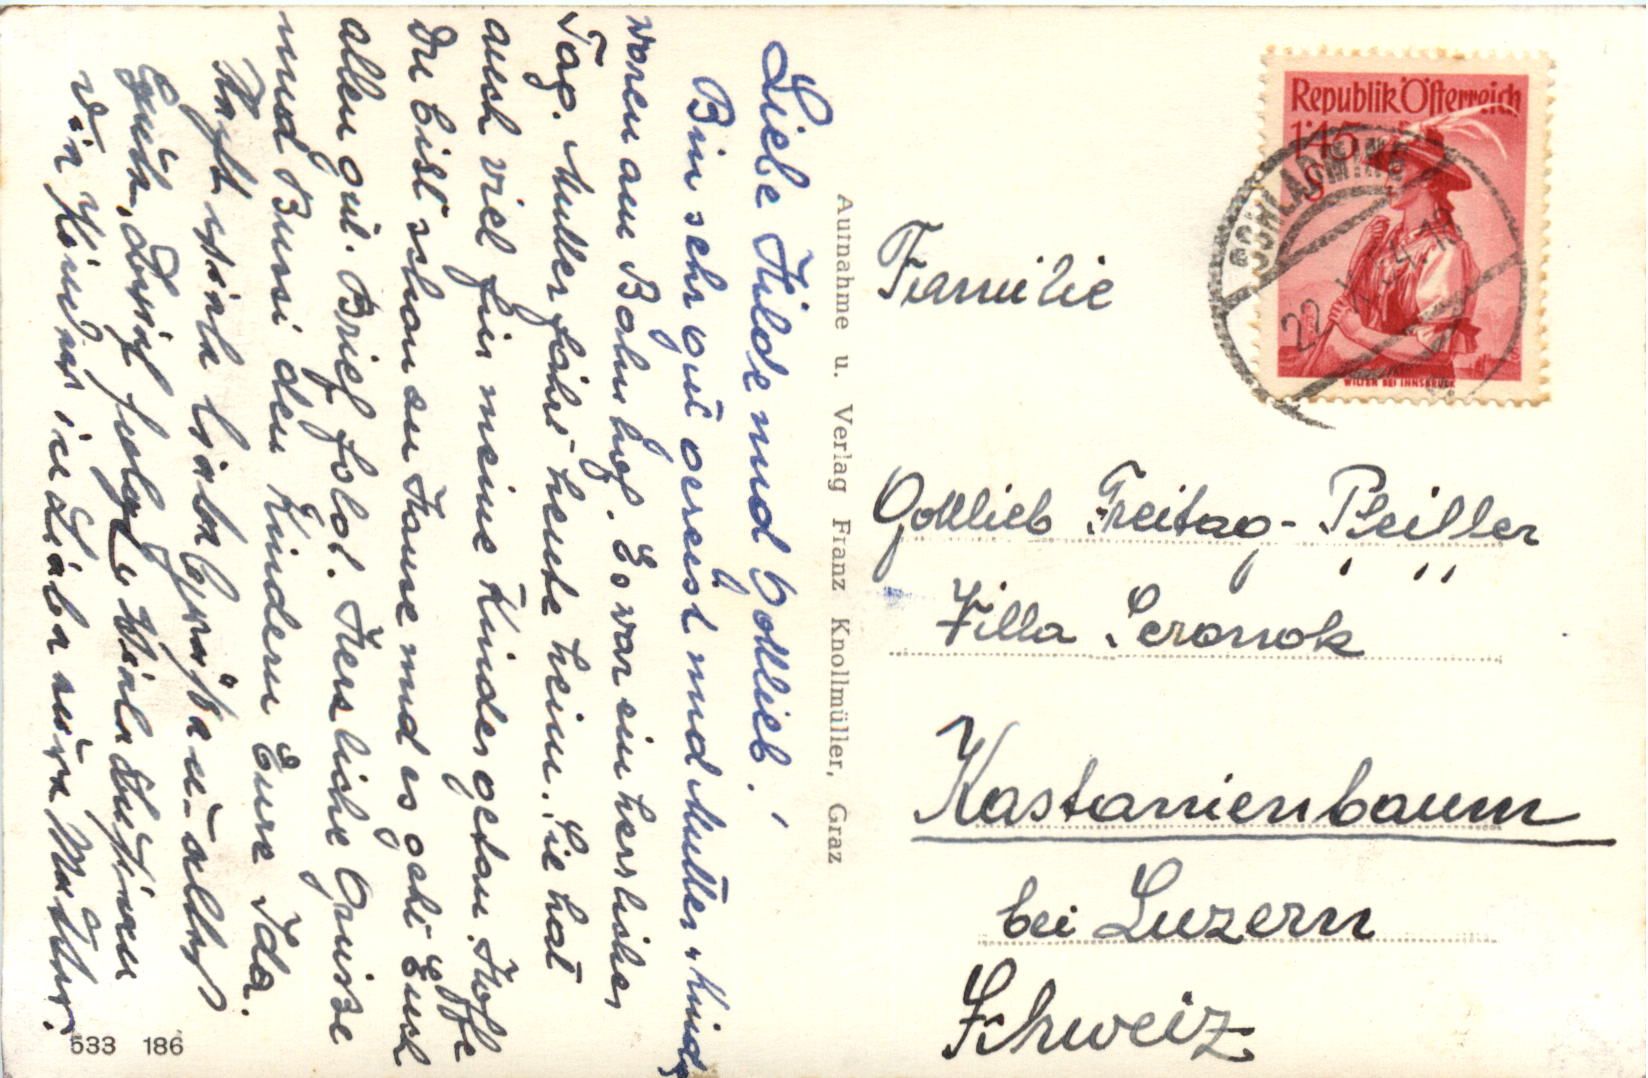 Liebe Hilde und Gottlieb!
Bin sehr gut gereist und Mutter & Kinder
waren am Bahnhof. Es war ein herrlicher
Tag. Mutter fährt heute heim. Sie hat
auch viel für meine Kinder getan. Hoffe
Du bist schon zu Hause und es geht Euch
allen gut. Brief folgt. Herzliche Grüsse
und Bussi den Kindern Eure Ida.
viele liebe Grüße u. alles
Gute, Brief folgt,
die Kinder in Liebe eure Mutter.
533 186
Aufnahme u. Verlag Franz Knollmüller, Graz
Republik Österreich
1·45
S
WILTEN BEI INNSBRUCK
SCHLADMING
22.
Familie
Gottlieb Freitag-
Villa
Kastanienbaum
bei Luzern
Schweiz